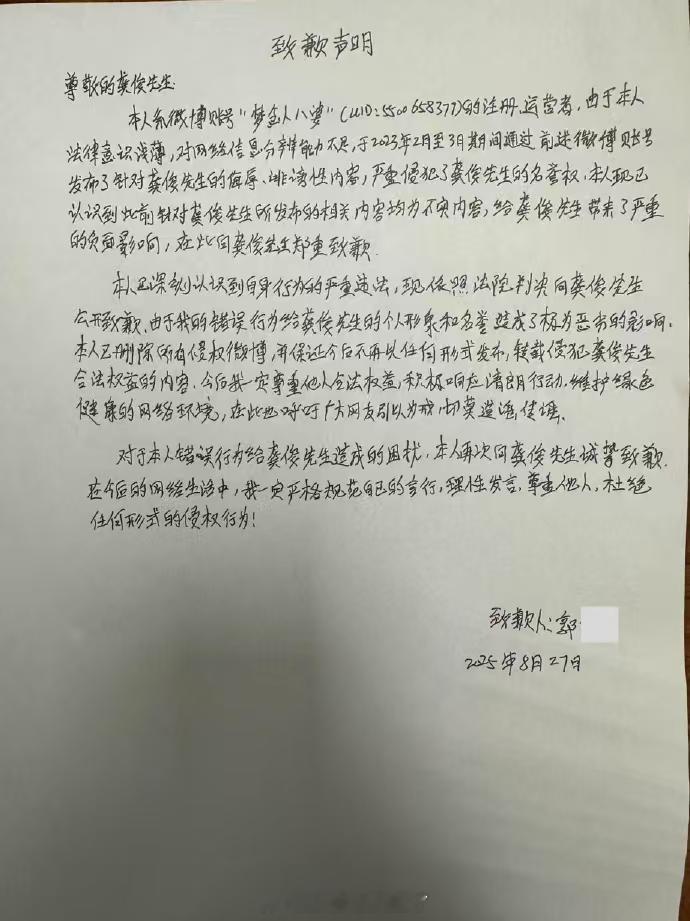 致歉声明
尊敬的龚俊先生:
本人系微博账号"梦金人八婆"(UID:5500658377)的注册、运营者,由于本人
法律意识浅薄,对网络信息分辨能力不足,于2023年2月至3月期间通过前述微博账号
发布了针对龚俊先生的侮辱、诽谤性内容,严重侵犯了龚俊先生的名誉权,本人现已
认识到此前针对龚俊先生所发布的相关内容均为不实内容,给龚俊先生带来了严重
的负面影响,在此向龚俊先生郑重致歉.
本人已深刻认识到自身行为的严重违法,现依照法院判决向龚俊先生
公开致歉,由于我的错误行为给龚俊先生的个人形象和名誉造成了极为恶劣的影响.
本人已删除所有侵权微博,并保证今后不再以任何形式发布,转载侵犯龚俊先生
合法权益的内容.今后我一定尊重他人合法权益,积极响应清朗行动.维护绿色
健康的网络环境,在此也呼吁广大网友引以为戒,切莫造谣、传谣.
对于本人错误行为给龚俊先生造成的困扰,本人再次向龚俊先生诚挚致歉.
在今后的网络生活中,我一定严格规范自己的言行,理性发言,尊重他人,杜绝
任何形式的侵权行为!
致歉人:郭
2025年8月27日